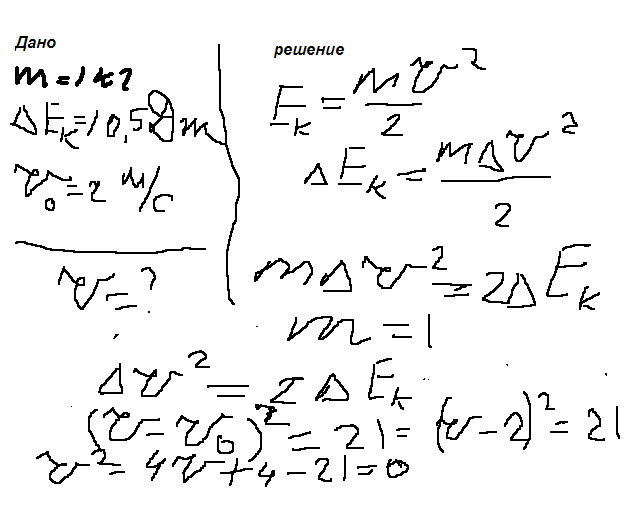 Дано
m = 1 кг
ΔEₖ = 10,5 Дж
v₀ = 2 м/с
v = ?
решение
Eₖ = mv²/2
ΔEₖ = mΔv²/2
mΔv² = 2ΔEₖ
m = 1
Δv² = 2ΔEₖ
(v − v₀)² = 21 = (v − 2)² = 21
v² = 4v + 4 − 21 = 0